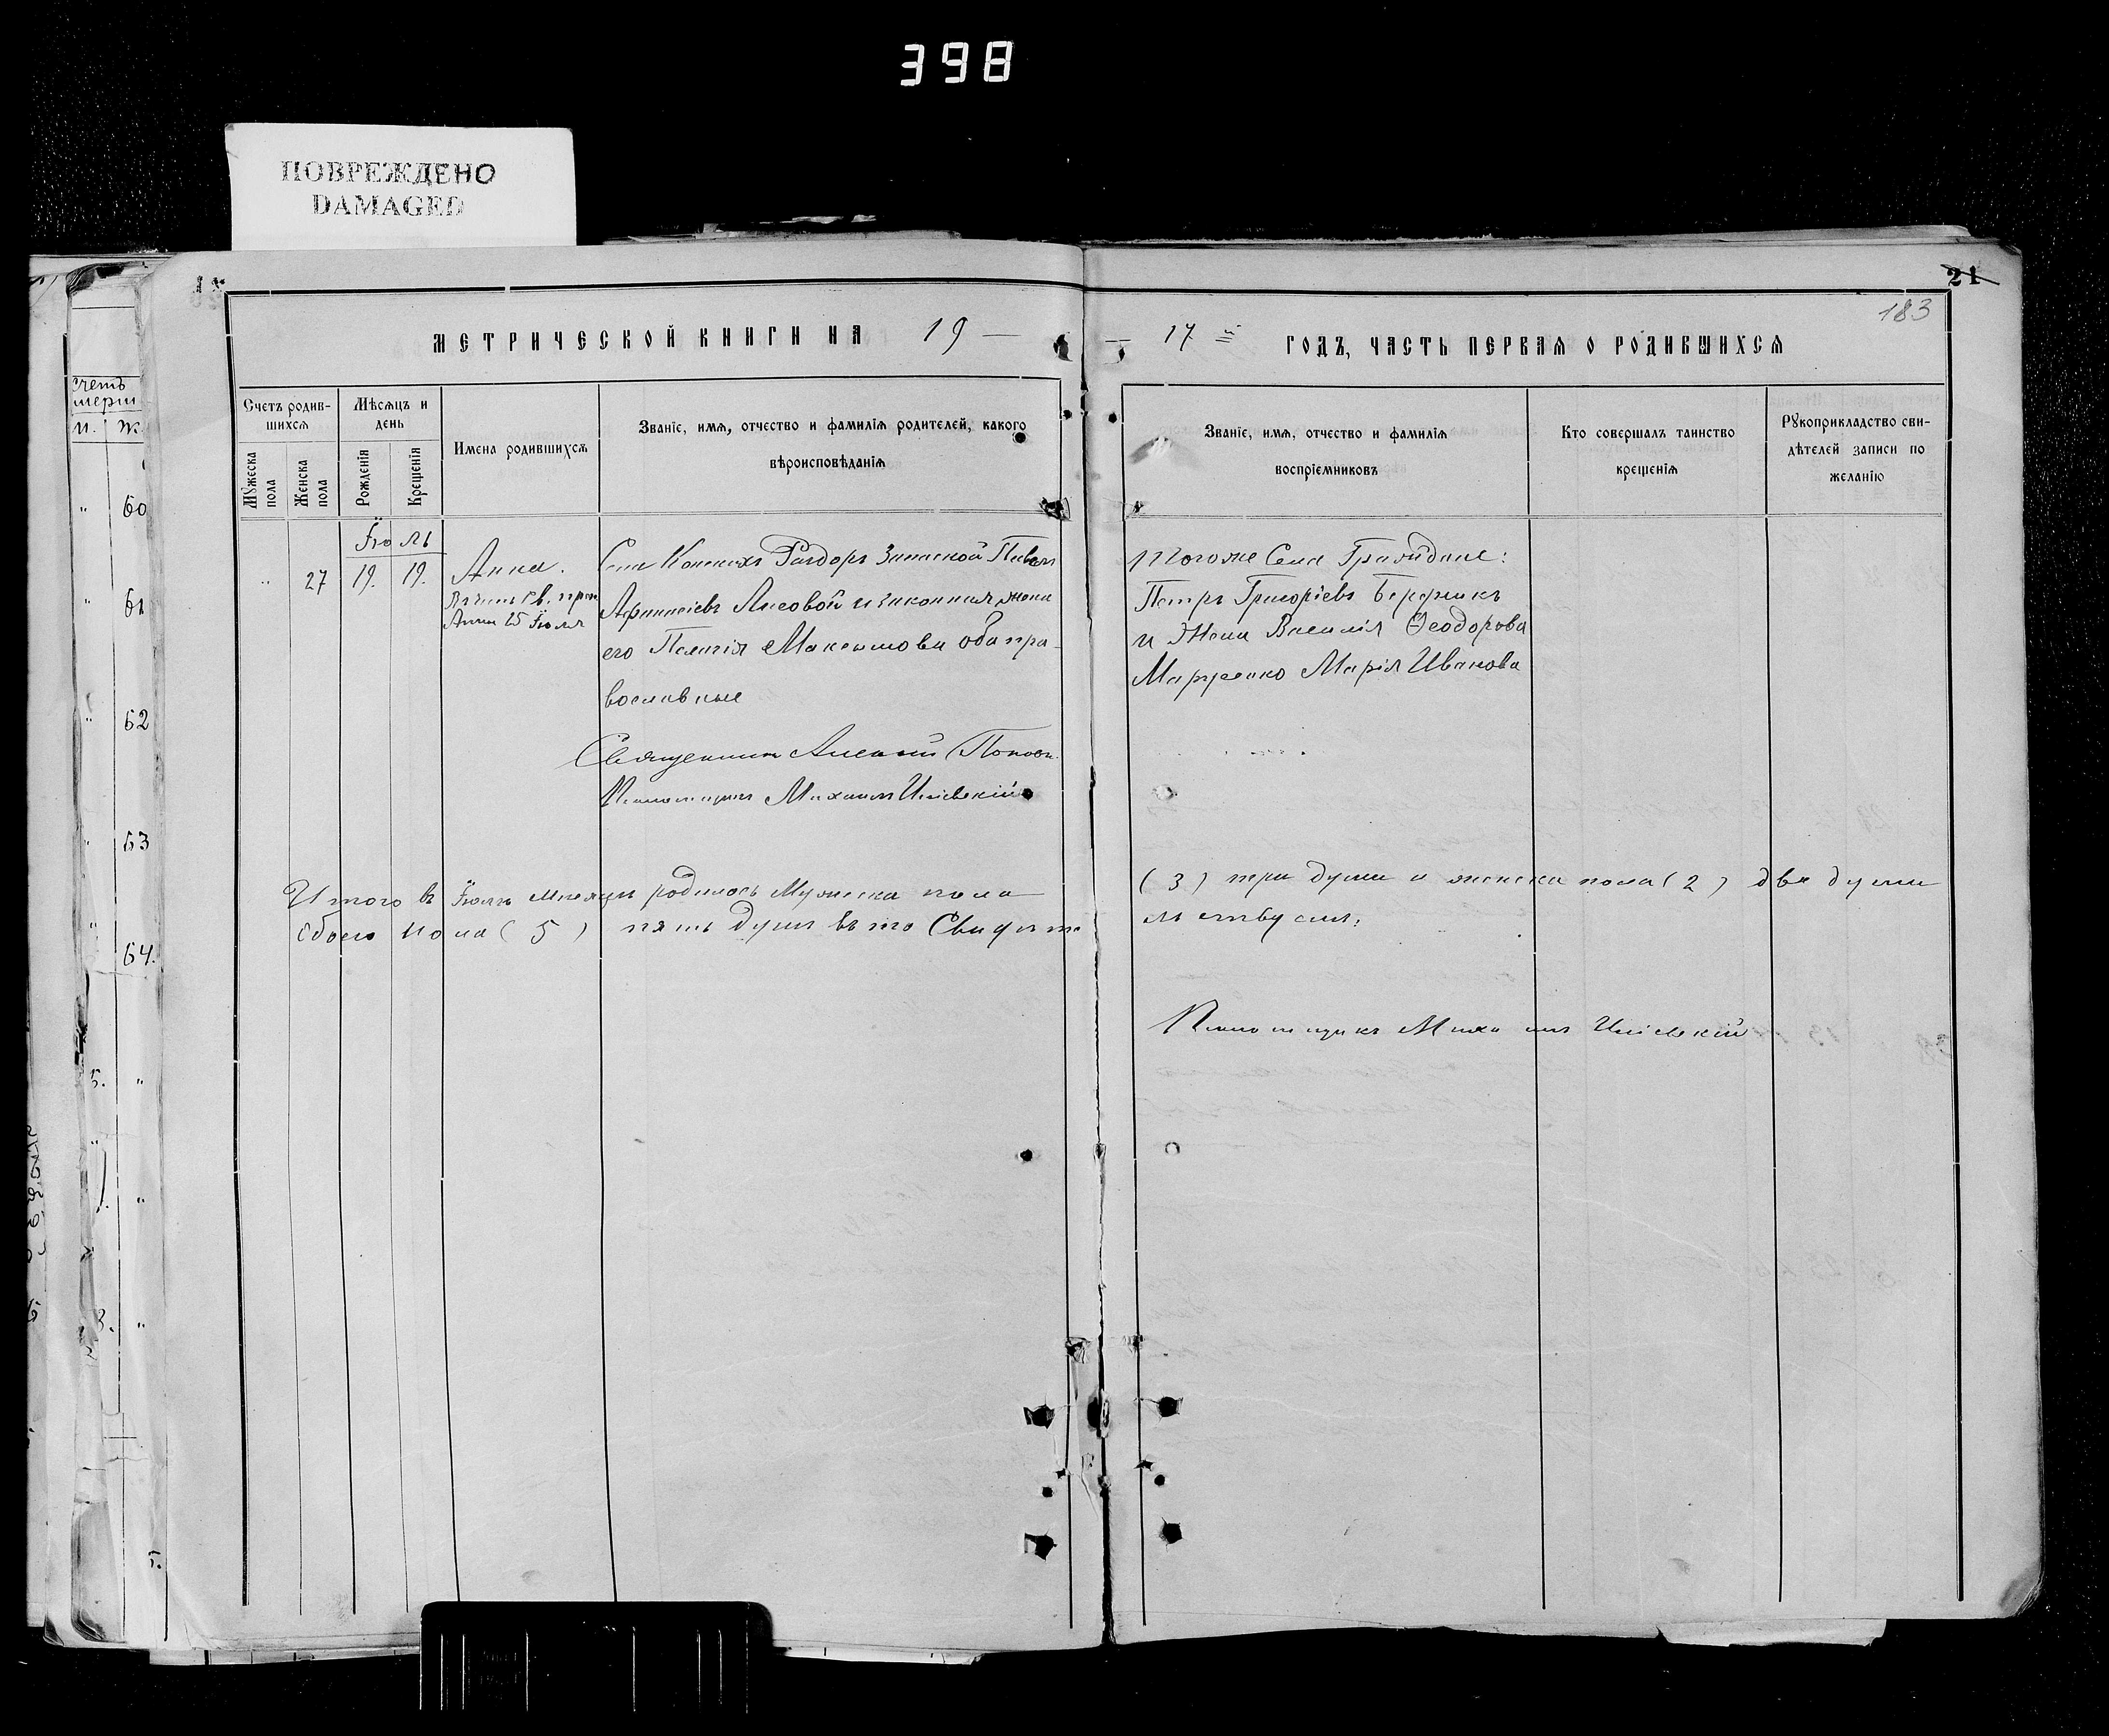 398
ПОВРЕЖДЕНО
DAMAGED
21
183
МЕТРИЧЕСКОЙ КНИГИ НА 19 —
— 17 й ГОДЪ, ЧАСТЬ ПЕРВАЯ О РОДИВШИХСЯ
Счетъ родив-
шихся
Мужеска пола
Женска пола
Мѣсяцъ и
день
Рожденія
Крещенія
Имена родившихся
Званіе, имя, отчество и фамилія родителей, какого
вѣроисповѣданія
Званіе, имя, отчество и фамилія
воспріемниковъ
Кто совершалъ таинство
крещенія
Рукоприкладство сви-
дѣтелей записи по
желанію
Іюль
27 19. 19.
Анна.
Въ честь св. прав.
Анны 25 Іюля
Села Конскихъ Раздоръ Запасной Павелъ
Афанасіевъ Лисовой и законная жена
его Пелагія Максимова оба пра-
вославные
Священникъ Алексій Поповъ
Псаломщикъ Михаилъ
Итого въ Іюлѣ мѣсяцѣ родилось Мужеска пола
Обоего пола (5) пять душъ въ то Свидѣте
Того же Села Граждане:
Петръ Григоріевъ Бережнъ
и Жена Василія Ѳеодорова
Марія Иванова
(3) три души и женска пола (2) двѣ души
льствуемъ:
Псаломщикъ Михаилъ
счетъ
умерш
м. Ж.
60
61
62
63
64.